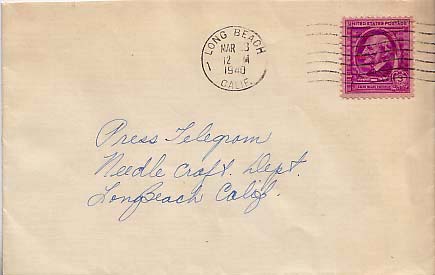 LONG BEACH
MAR 3
12 M
1940
CALIF.
UNITED STATES POSTAGE
3¢
Press Telegram
Needle Craft. Dept.
Long Beach Calif.